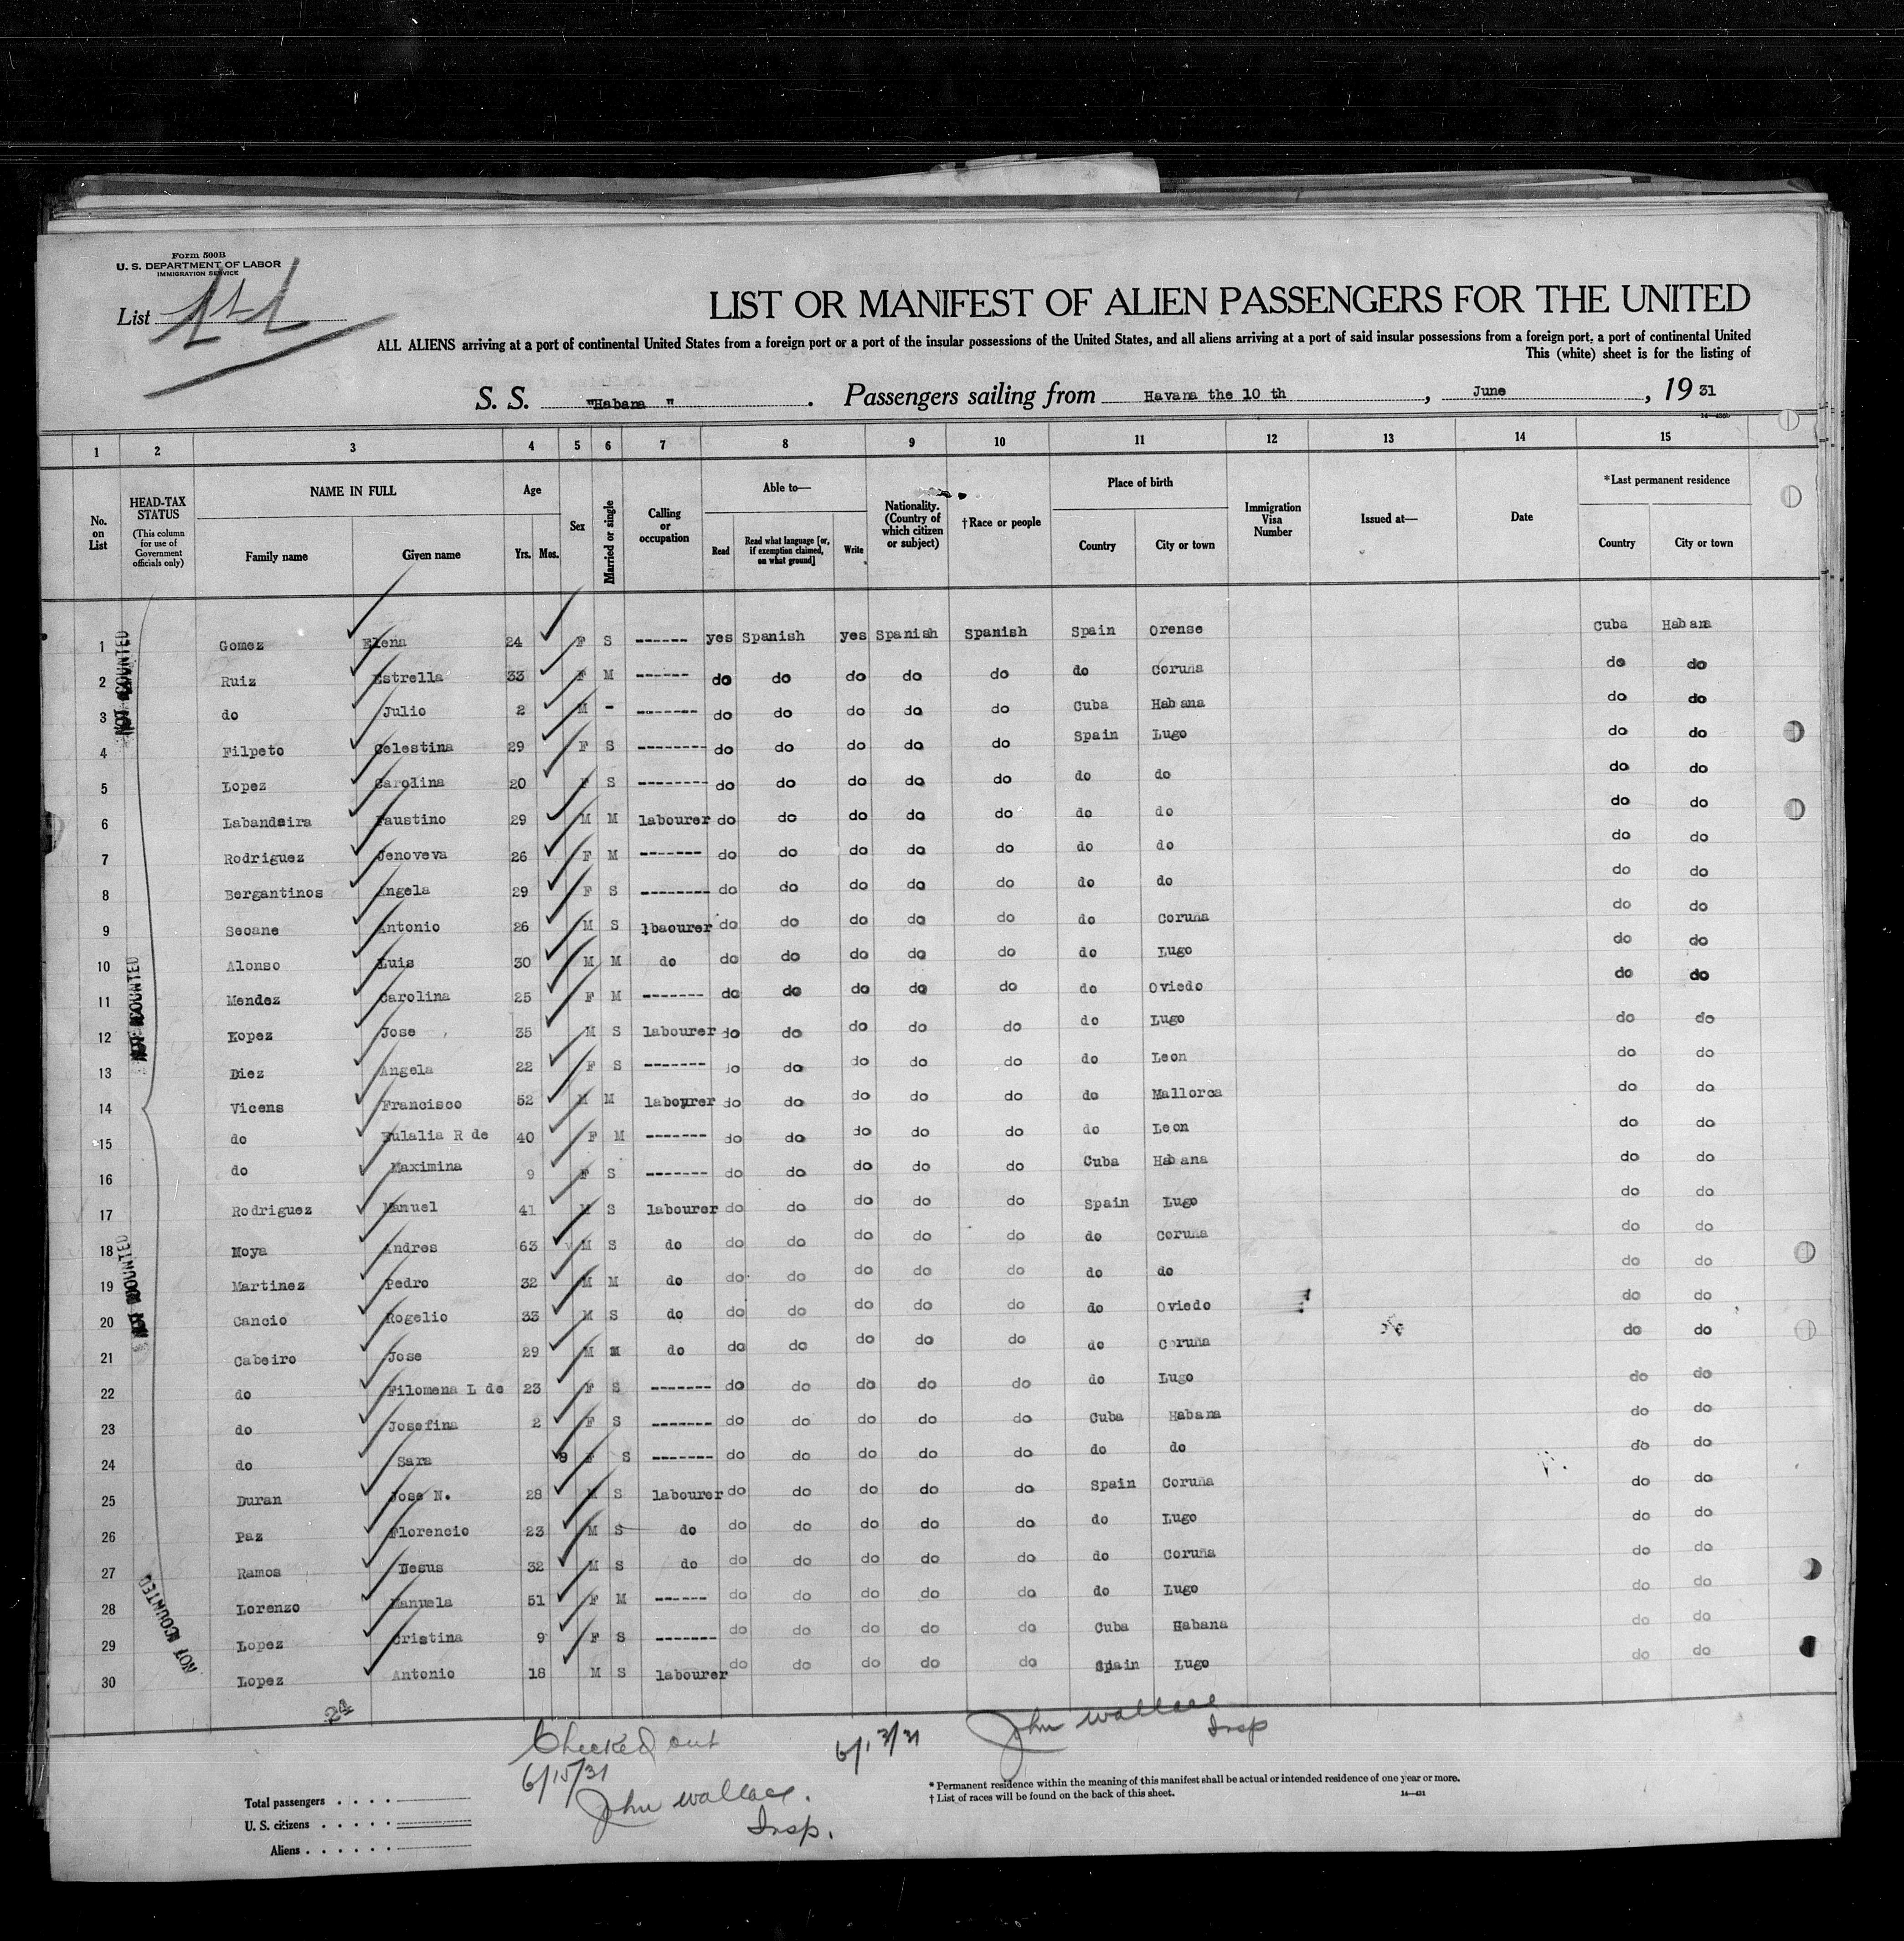 Form 500B
U. S. DEPARTMENT OF LABOR
IMMIGRATION SERVICE
List 1st
LIST OR MANIFEST OF ALIEN PASSENGERS FOR THE UNITED
ALL ALIENS arriving at a port of continental United States from a foreign port or a port of the insular possessions of the United States, and all aliens arriving at a port of said insular possessions from a foreign port, a port of continental United
This (white) sheet is for the listing of
S. S. "Habana " . Passengers sailing from Havana the 10 th , June , 19 31
1 2 3 4 5 6 7 8 9 10 11 12 13 14 15
No. on List
HEAD-TAX STATUS (This column for use of Government officials only)
NAME IN FULL
Family name Given name
Age
Yrs. Mos.
Sex
Married or single
Calling or occupation
Able to—
Read
Read what language [or, if exemption claimed, on what ground]
Write
Nationality. (Country of which citizen or subject)
†Race or people
Place of birth
Country City or town
Immigration Visa Number
Issued at—
Date
*Last permanent residence
Country City or town
1 Gomez Elena 24 F S ------ yes Spanish yes Spanish Spanish Spain Orense Cuba Habana
2 Ruiz Estrella 33 F M ------ do do do do do do Coruña do do
3 do Julio 2 M - ------- do do do do do Cuba Habana do do
4 Filpeto Celestina 29 F S -------- do do do do do Spain Lugo do do
5 Lopez Carolina 20 F S -------- do do do do do do do do do
6 Labandeira Faustino 29 M M labourer do do do do do do do do do
7 Rodriguez Jenoveva 26 F M ------- do do do do do do do do do
8 Bergantinos Angela 29 F S -------- do do do do do do do do do
9 Seoane Antonio 26 M S lbaourer do do do do do do Coruña do do
10 Alonso Luis 30 M M do do do do do do do Lugo do do
11 Mendez Carolina 25 F M ------- do do do do do do Oviedo do do
12 Kopez Jose 35 M S labourer do do do do do do Lugo do do
13 Diez Angela 22 F S ------- do do do do do do Leon do do
14 Vicens Francisco 52 M M labourer do do do do do do Mallorca do do
15 do Eulalia R de 40 F M ------- do do do do do do Leon do do
16 do Maximina 9 F S ------- do do do do do Cuba Habana do do
17 Rodriguez Manuel 41 M S labourer do do do do do Spain Lugo do do
18 Moya Andres 63 M S do do do do do do do Coruña do do
19 Martinez Pedro 32 M M do do do do do do do do do do
20 Cancio Rogelio 33 M S do do do do do do do Oviedo do do
21 Cabeiro Jose 29 M M do do do do do do do Coruña do do
22 do Filomena L de 23 F S ------- do do do do do do Lugo do do
23 do Josefina 2 F S ------- do do do do do Cuba Habana do do
24 do Sara 9 F S ------- do do do do do do do do do
25 Duran Jose N. 28 M S labourer do do do do do Spain Coruña do do
26 Paz Florencio 23 M S do do do do do do do Lugo do do
27 Ramos Jesus 32 M S do do do do do do do Coruña do do
28 Lorenzo Manuela 51 F M ------ do do do do do do Lugo do do
29 Lopez Cristina 9 F S ------- do do do do do Cuba Habana do do
30 Lopez Antonio 18 M S labourer do do do do do Spain Lugo do do
NOT COUNTED
NOT COUNTED
NOT COUNTED
NOT COUNTED
24
Checked out
6/15/31
John Wallace.
Insp.
6/13/31
John Wallace
Insp
* Permanent residence within the meaning of this manifest shall be actual or intended residence of one year or more.
† List of races will be found on the back of this sheet.
14—421
Total passengers . . . .
U. S. citizens . . . . .
Aliens . . . . . .